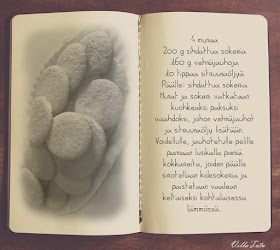 4 munaa
200 g sihdattua sokeria
160 g vehnäjauhoja
10 tippaa sitruunaöljyä
Päälle: sihdattua sokeria
Munat ja sokeri vatkataan
kuohkeaksi paksuksi
vaahdoksi, johon vehnäjauhot
ja sitruunaöljy lisätään.
Voidellulle, jauhotetulle pellille
pannaan lusikalla pieniä
kokkareita, joiden päälle
sirotellaan kidesokeria ja
paistetaan vaalean
keltaiseksi kohtalaisessa
lämmössä.